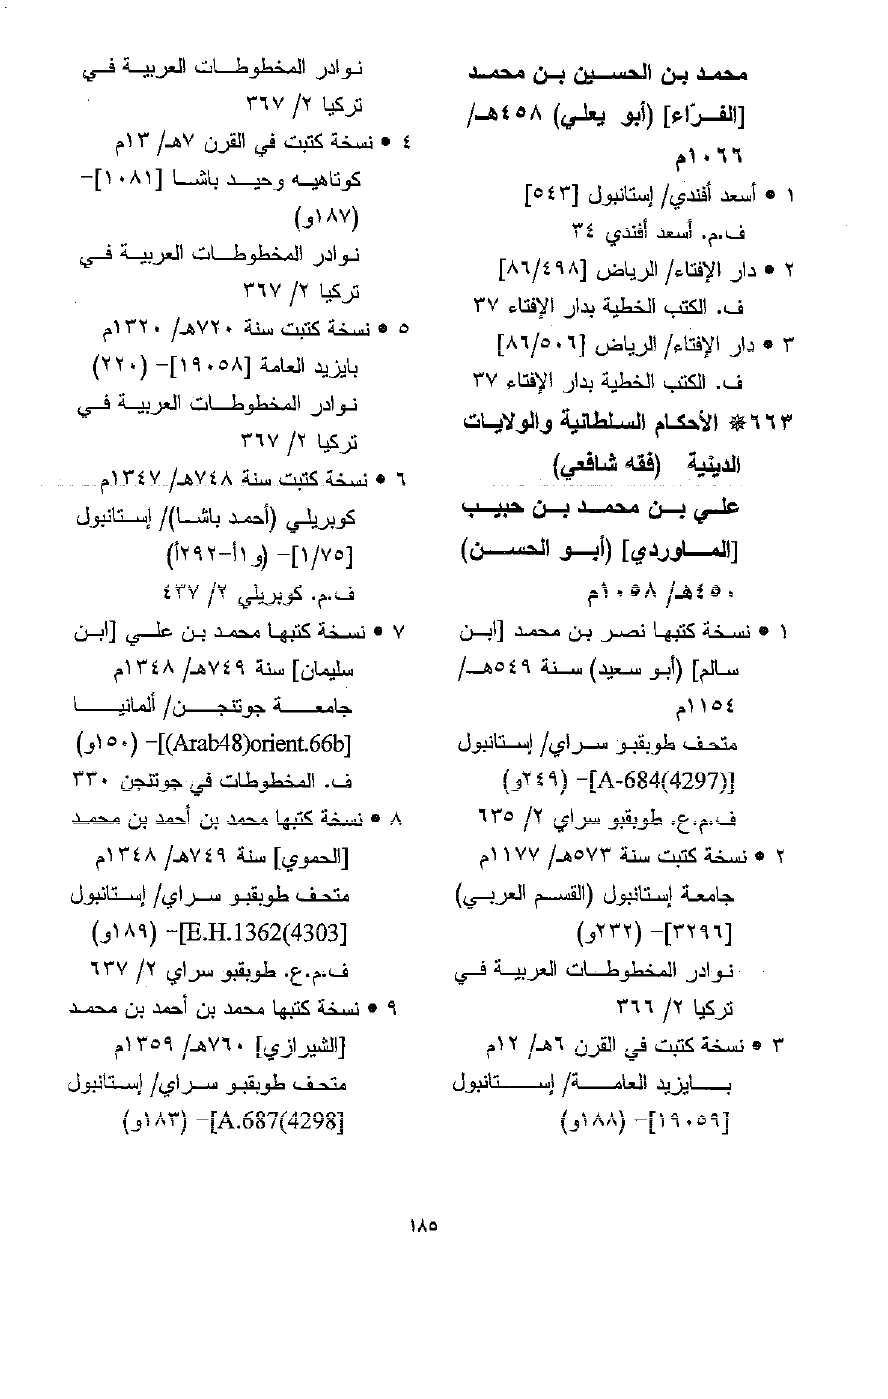 محمد بن الحسين بن محمد
[الفرّاء] (أبو يعلي) ٤٥٨هـ/
١٠٦٦م
١ • أسعد أفندي/ إستانبول [٥٤٣]
ف.م. أسعد أفندي ٣٤
٢ • دار الإفتاء/ الرياض [٨٦/٤٩٨]
ف. الكتب الخطية بدار الإفتاء ٣٧
٣ • دار الإفتاء/ الرياض [٨٦/٥٠٦]
ف. الكتب الخطية بدار الإفتاء ٣٧
٦٦٣* الأحكام السلطانية والولايات
الدينية (فقه شافعي)
علي بن محمد بن حبيب
[الماوردي] (أبو الحسن)
٤٥٠هـ/ ١٠٥٨م
١ • نسخة كتبها نصر بن محمد [ابن
سالم] (أبو سعيد) سنة ٥٤٩هـ/
١١٥٤م
متحف طوبقبو سراي/ إستانبول
[A-684(4297)]– (٢٤٩و)
ف.م.ع. طوبقبو سراي ٢/ ٦٣٥
٢ • نسخة كتبت سنة ٥٧٣هـ/ ١١٧٧م
جامعة إستانبول (القسم العربي)
[٣٢٩٦]– (٢٣٢و)
نوادر المخطوطات العربية في
تركيا ٢/ ٣٦٦
٣ • نسخة كتبت في القرن ٦هـ/ ١٢م
بايزيد العامة/ إستانبول
[١٩٠٥٩]– (١٨٨و)
نوادر المخطوطات العربية في
تركيا ٢/ ٣٦٧
٤ • نسخة كتبت في القرن ٧هـ/ ١٣م
كوتاهيه وحيد باشا [١٠٨١]–
(١٨٧و)
نوادر المخطوطات العربية في
تركيا ٢/ ٣٦٧
٥ • نسخة كتبت سنة ٧٢٠هـ/ ١٣٢٠م
بايزيد العامة [١٩٠٥٨]– (٢٢٠)
نوادر المخطوطات العربية في
تركيا ٢/ ٣٦٧
٦ • نسخة كتبت سنة ٧٤٨هـ/ ١٣٤٧م
كوبريلي (أحمد باشا)/ إستانبول
[١/٧٥]– (و١أ–٢٩٢أ)
ف.م. كوبريلي ٢/ ٤٣٧
٧ • نسخة كتبها محمد بن علي [ابن
سليمان] سنة ٧٤٩هـ/ ١٣٤٨م
جامعة جوتنجن/ ألمانيا
[(Arab48)orient.66b]– (١٥٠و)
ف. المخطوطات في جوتنجن ٣٣٠
٨ • نسخة كتبها محمد بن أحمد بن محمد
[الحموي] سنة ٧٤٩هـ/ ١٣٤٨م
متحف طوبقبو سراي/ إستانبول
[E.H.1362(4303]– (١٨٩و)
ف.م.ع. طوبقبو سراي ٢/ ٦٣٧
٩ • نسخة كتبها محمد بن أحمد بن محمد
[الشيرازي] ٧٦٠هـ/ ١٣٥٩م
متحف طوبقبو سراي/ إستانبول
[A.687(4298]– (١٨٣و)
١٨٥